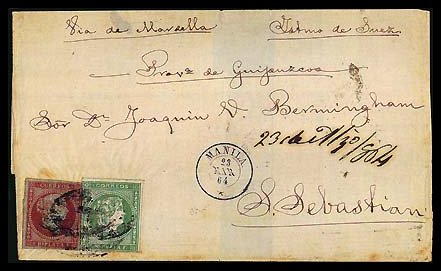 Via de Marsella Istmo de Suez
Provª de Guipuzcoa
Sor Dn Joaquin V. Bermingham
23 de Mzo/864
MANILA
23
MAR
64
S. Sebastian
CORREOS